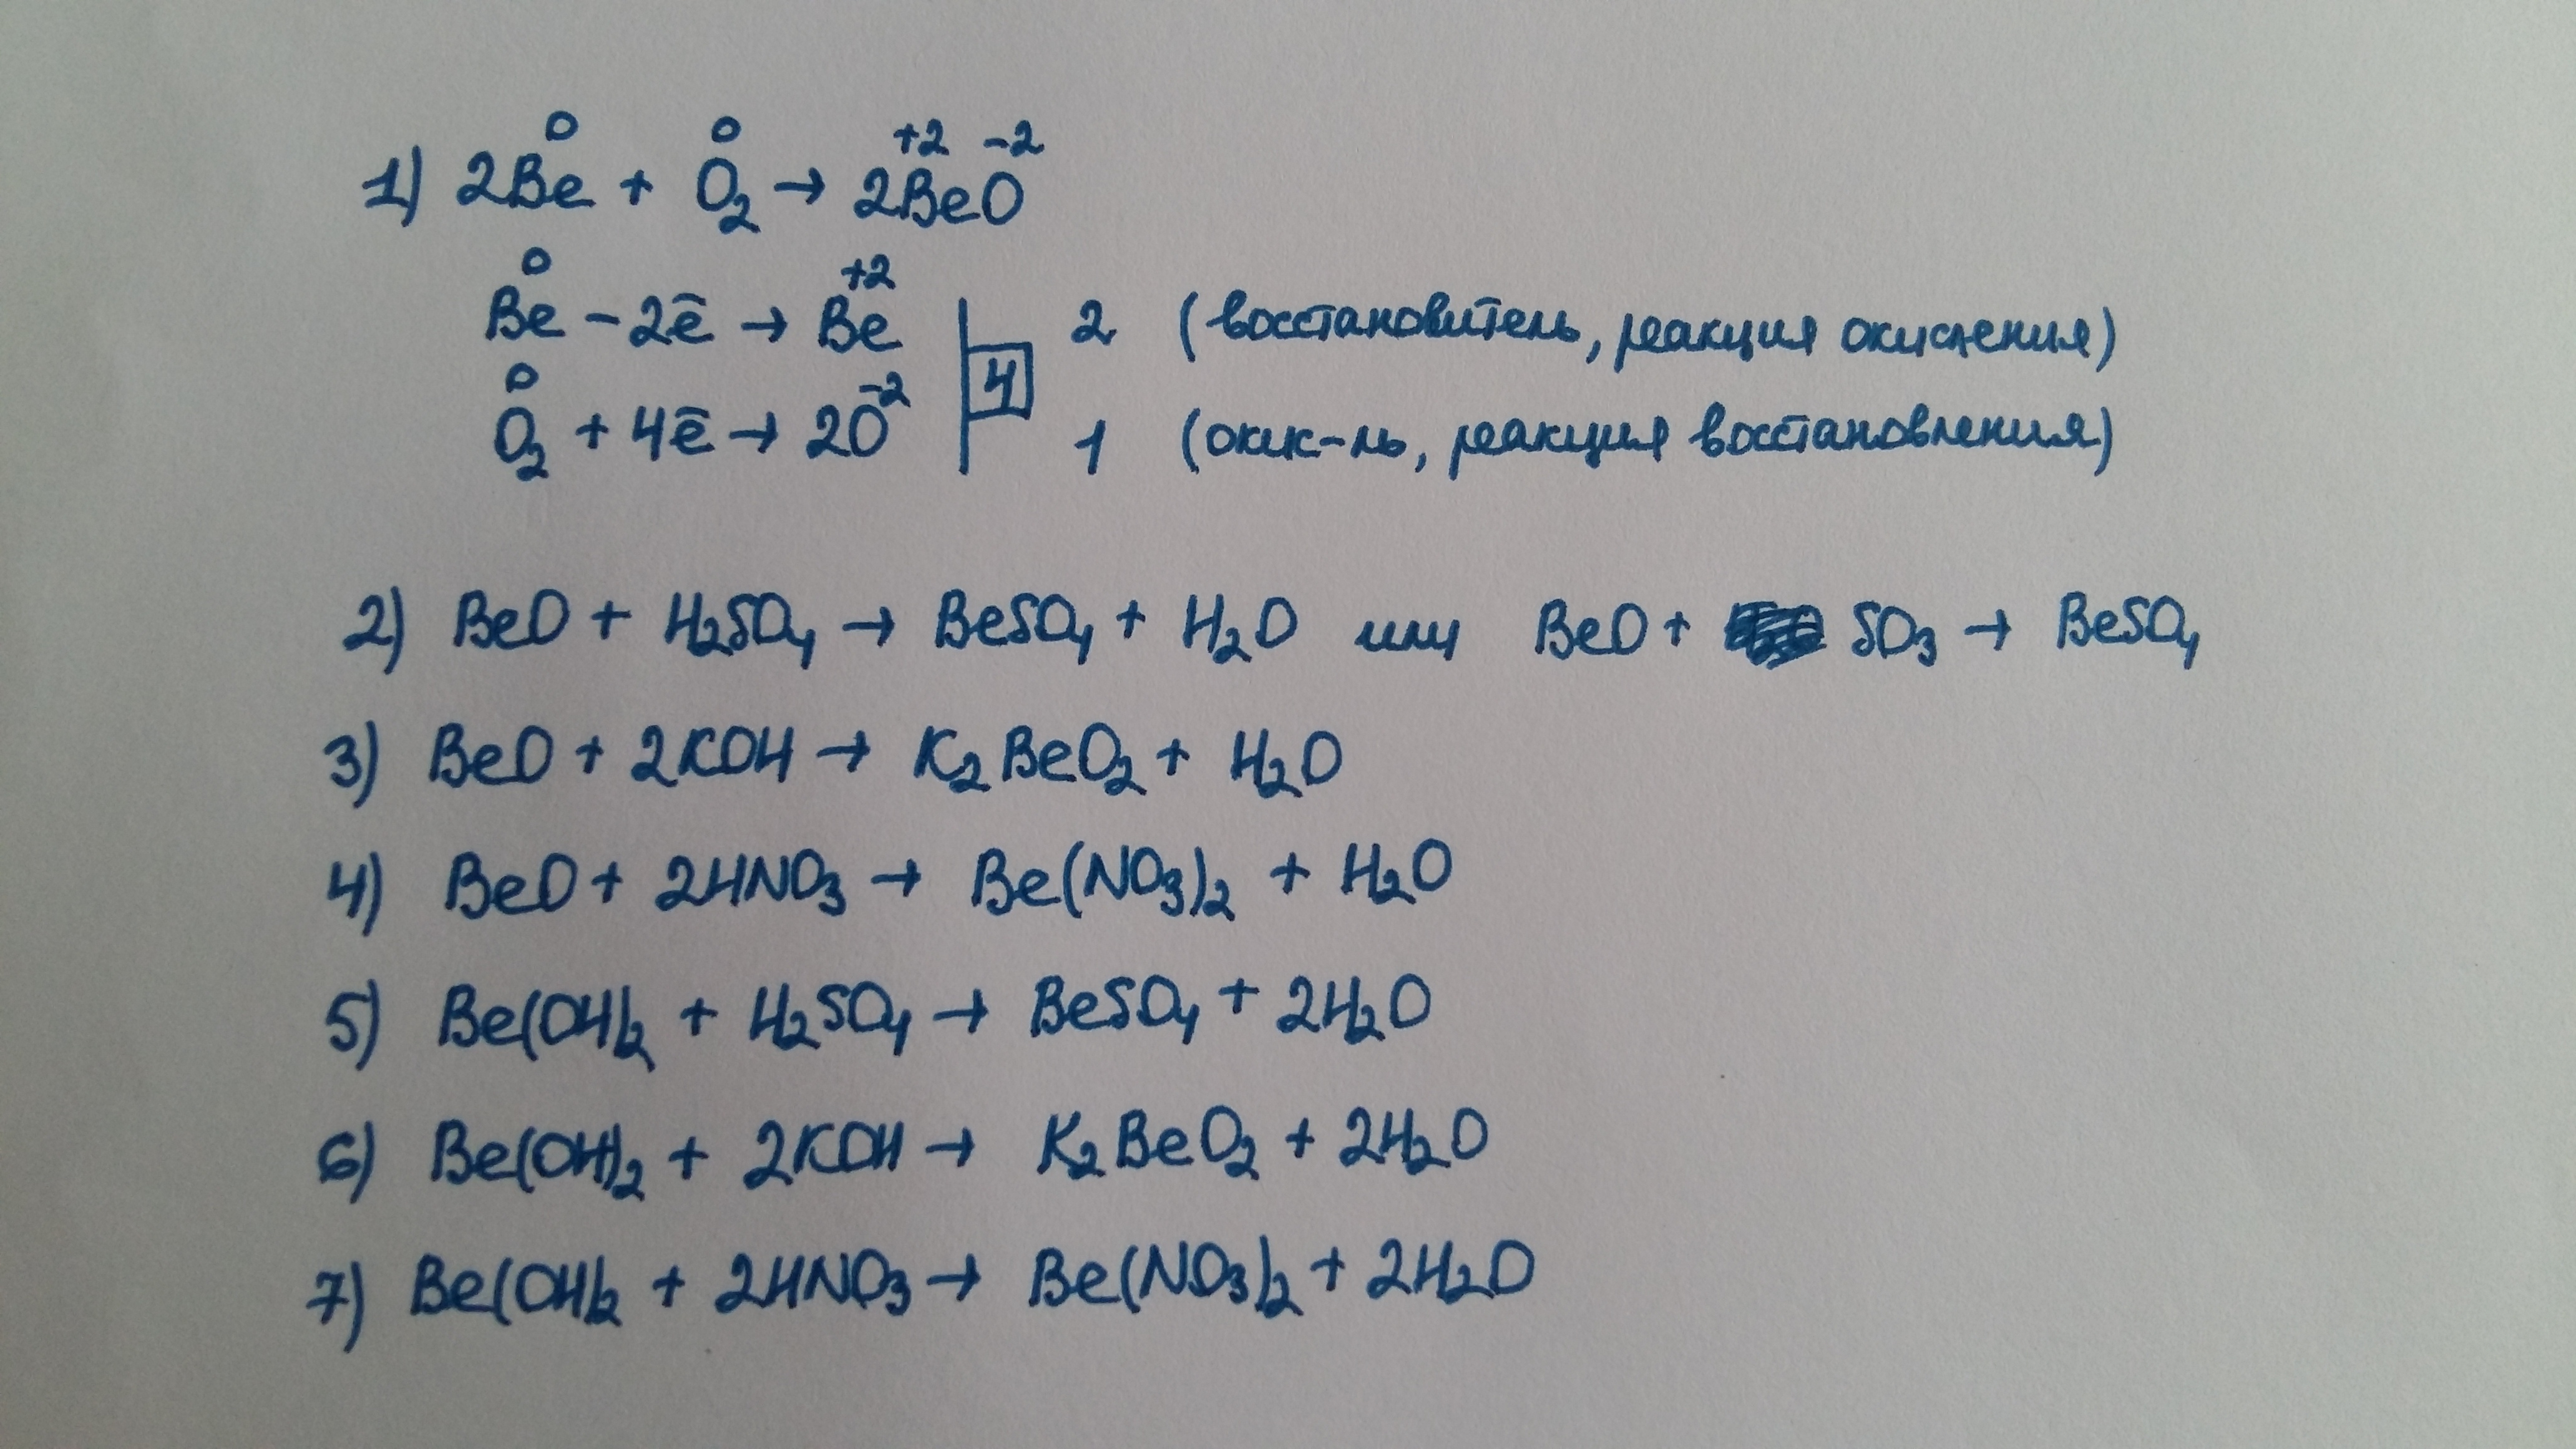 1) 2Be⁰ + O₂⁰ → 2Be⁺²O⁻²
Be⁰ – 2ē → Be⁺² | 4 | 2 (восстановитель, реакция окисления)
O₂⁰ + 4ē → 2O⁻² | 1 (окис-ль, реакция восстановления)
2) BeO + H₂SO₄ → BeSO₄ + H₂O или BeO + SO₃ → BeSO₄
3) BeO + 2KOH → K₂BeO₂ + H₂O
4) BeO + 2HNO₃ → Be(NO₃)₂ + H₂O
5) Be(OH)₂ + H₂SO₄ → BeSO₄ + 2H₂O
6) Be(OH)₂ + 2KOH → K₂BeO₂ + 2H₂O
7) Be(OH)₂ + 2HNO₃ → Be(NO₃)₂ + 2H₂O